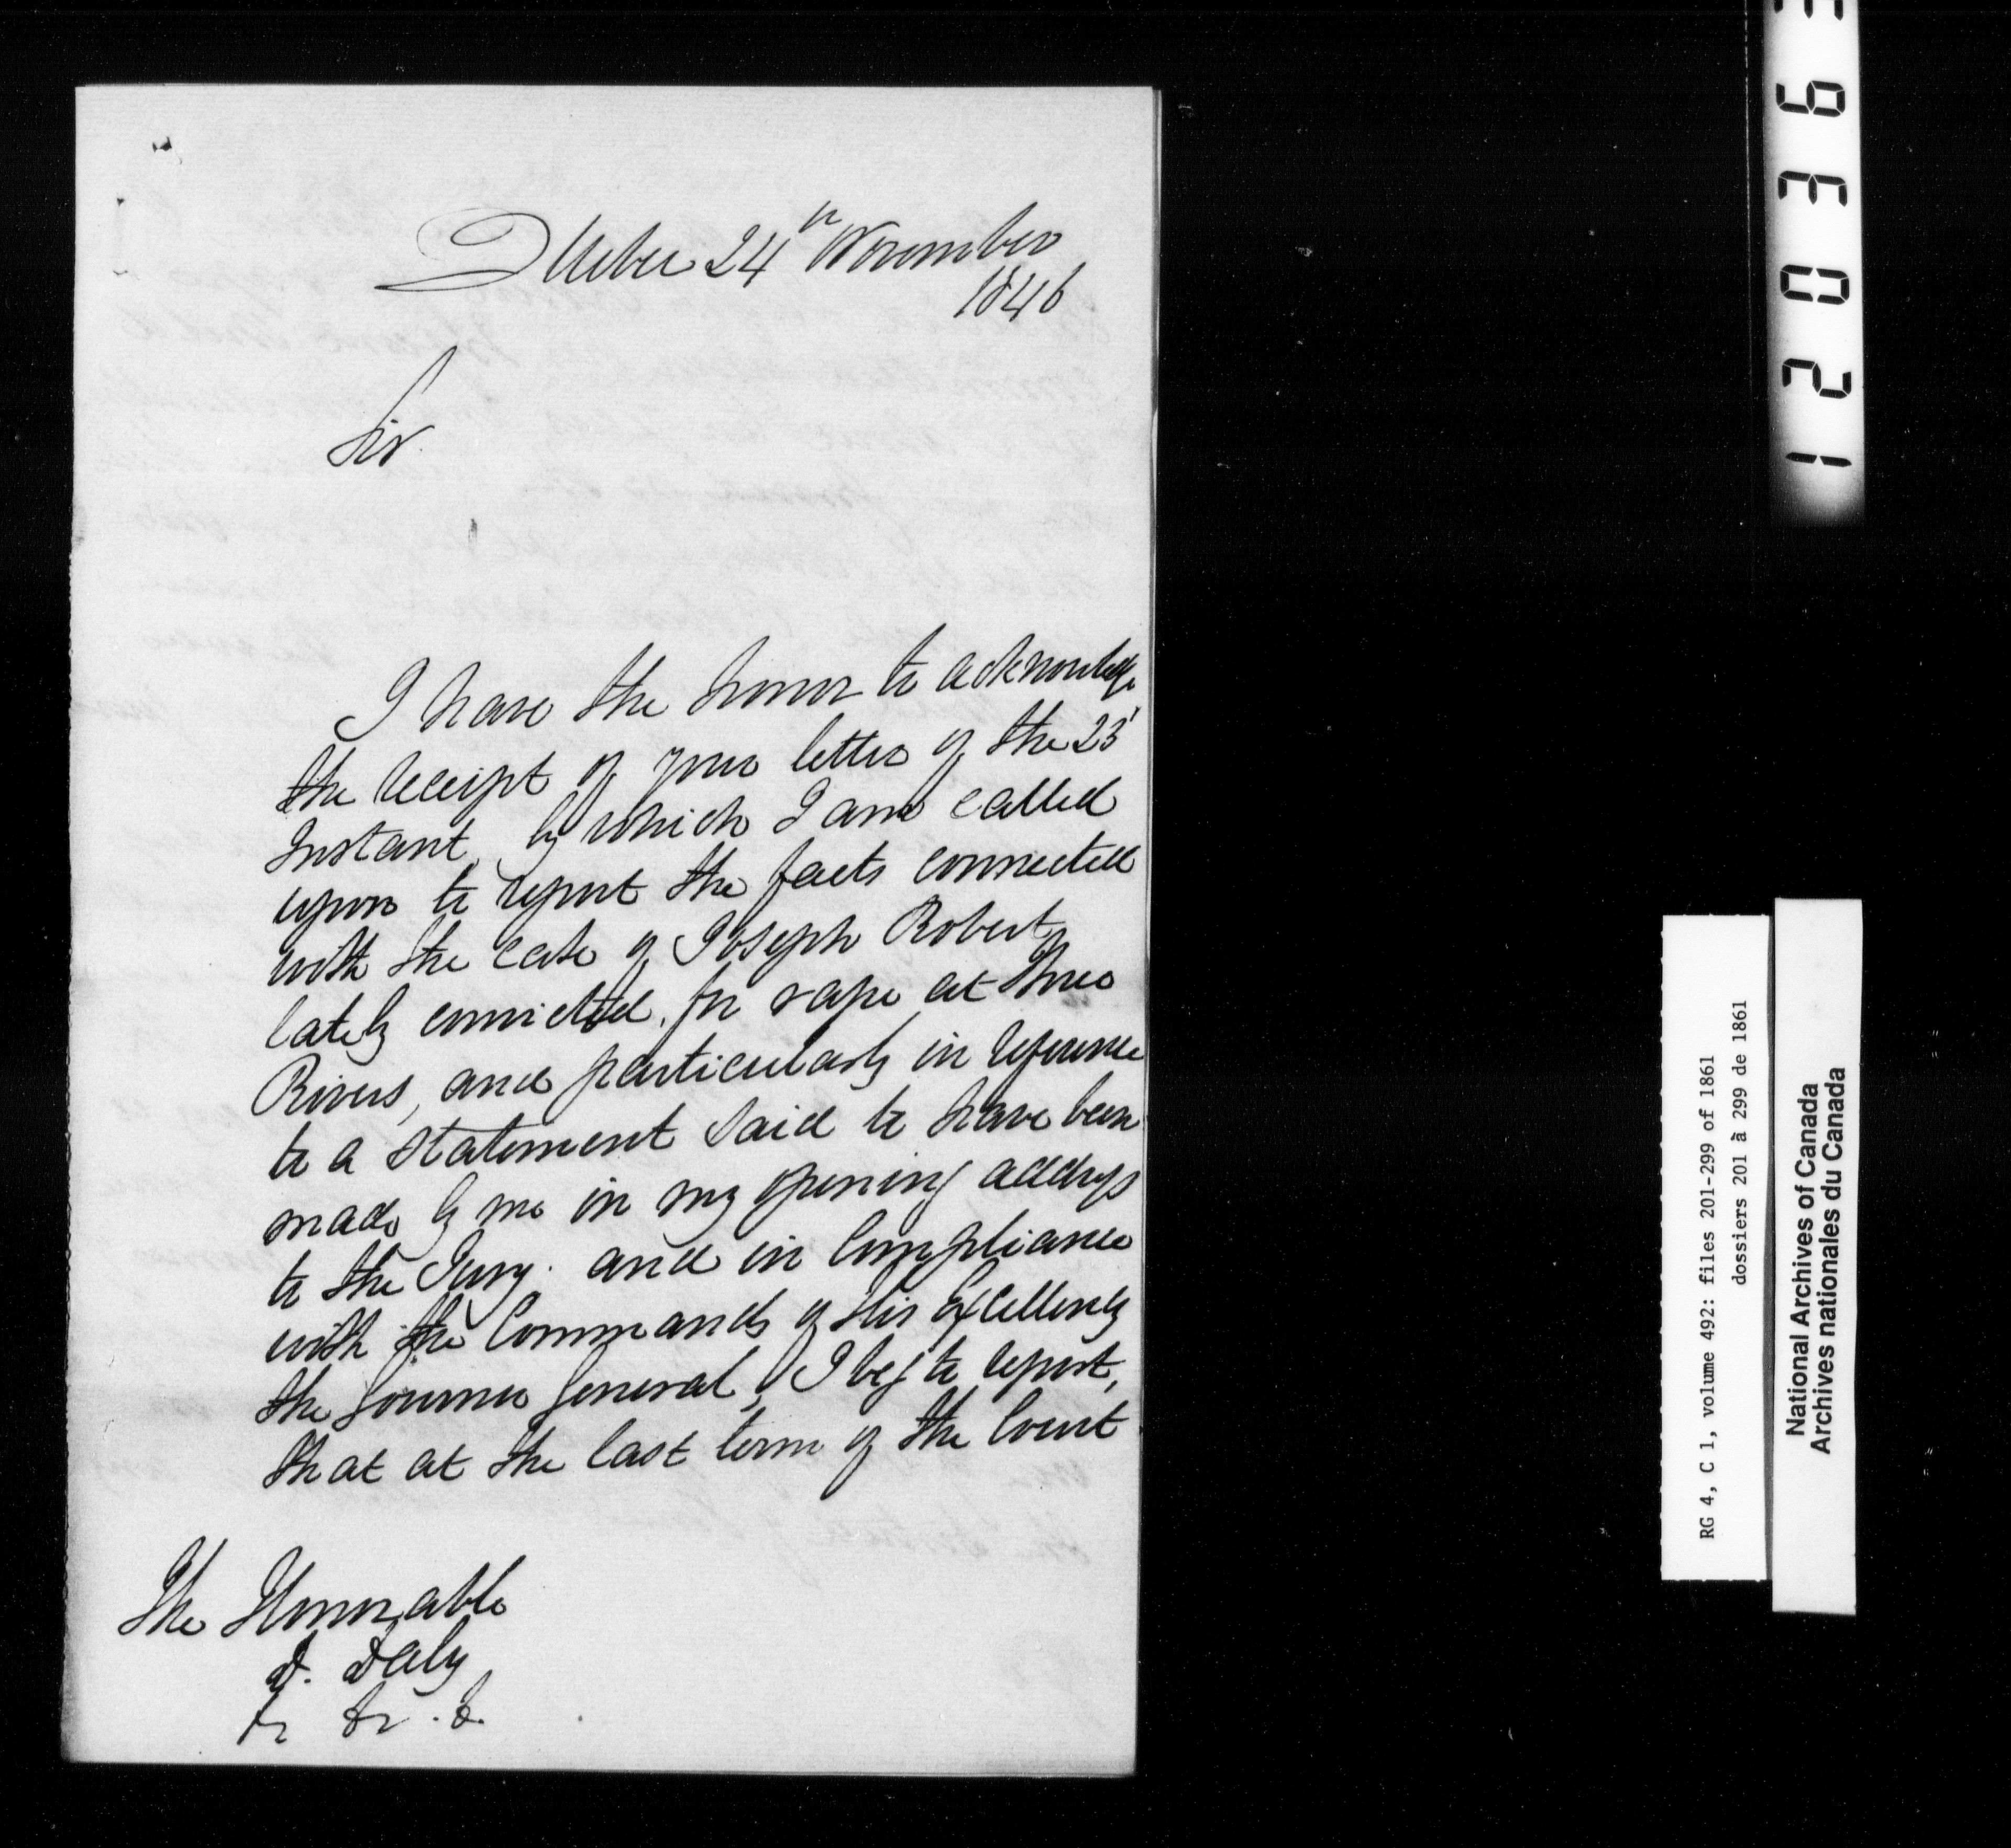 Quebec 24th November
1846
Sir.
I have the honor to acknowledge
the receipt of your letter of the 23d
Instant, by which I am called
upon to report the facts connected
with the case of Joseph Robert
lately convicted for rape at Three
Rivers, and particularly in reference
to a statement said to have been
made by me in my opening address
to the Jury. and in Compliance
with the Commands of His Excellency
the Governor General, I beg to report,
that at the last term of the Court
The Honorable
D. Daly
&c &c. &c.
120363
RG 4, C 1, volume 492: files 201-299 of 1861
dossiers 201 à 299 de 1861
National Archives of Canada
Archives nationales du Canada